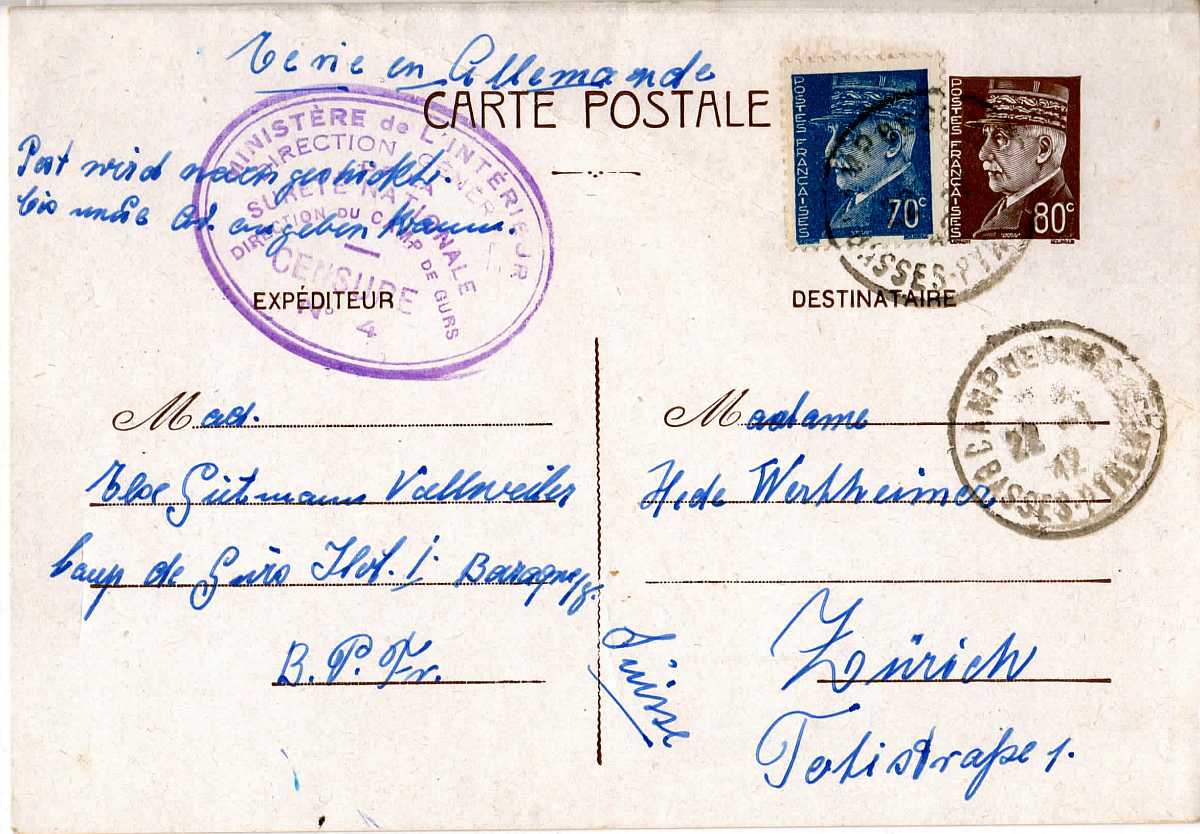 Verie en Allemande
CARTE POSTALE
Post wird nachgeschickt.
bis neue Ad. angeben kann.
MINISTÈRE de L'INTÉRIEUR
DIRECTION GÉNÉR
SURETÉ NATIONALE
DIRECTION DU CAMP DE GURS
CENSURE
No 4
POSTES FRANÇAISES
70c
POSTES FRANÇAISES
80c
BASSES-PYR
EXPÉDITEUR
DESTINATAIRE
CAMP DE GURS
22
42
BASSES-PYRÉNÉES
Mad.
Else Gutmann Vollweiler
Camp de Gurs Ilot. I
B. P. Fr.
Madame
Hede Wertheimer
Zürich
Tödistraße 1.
Suisse